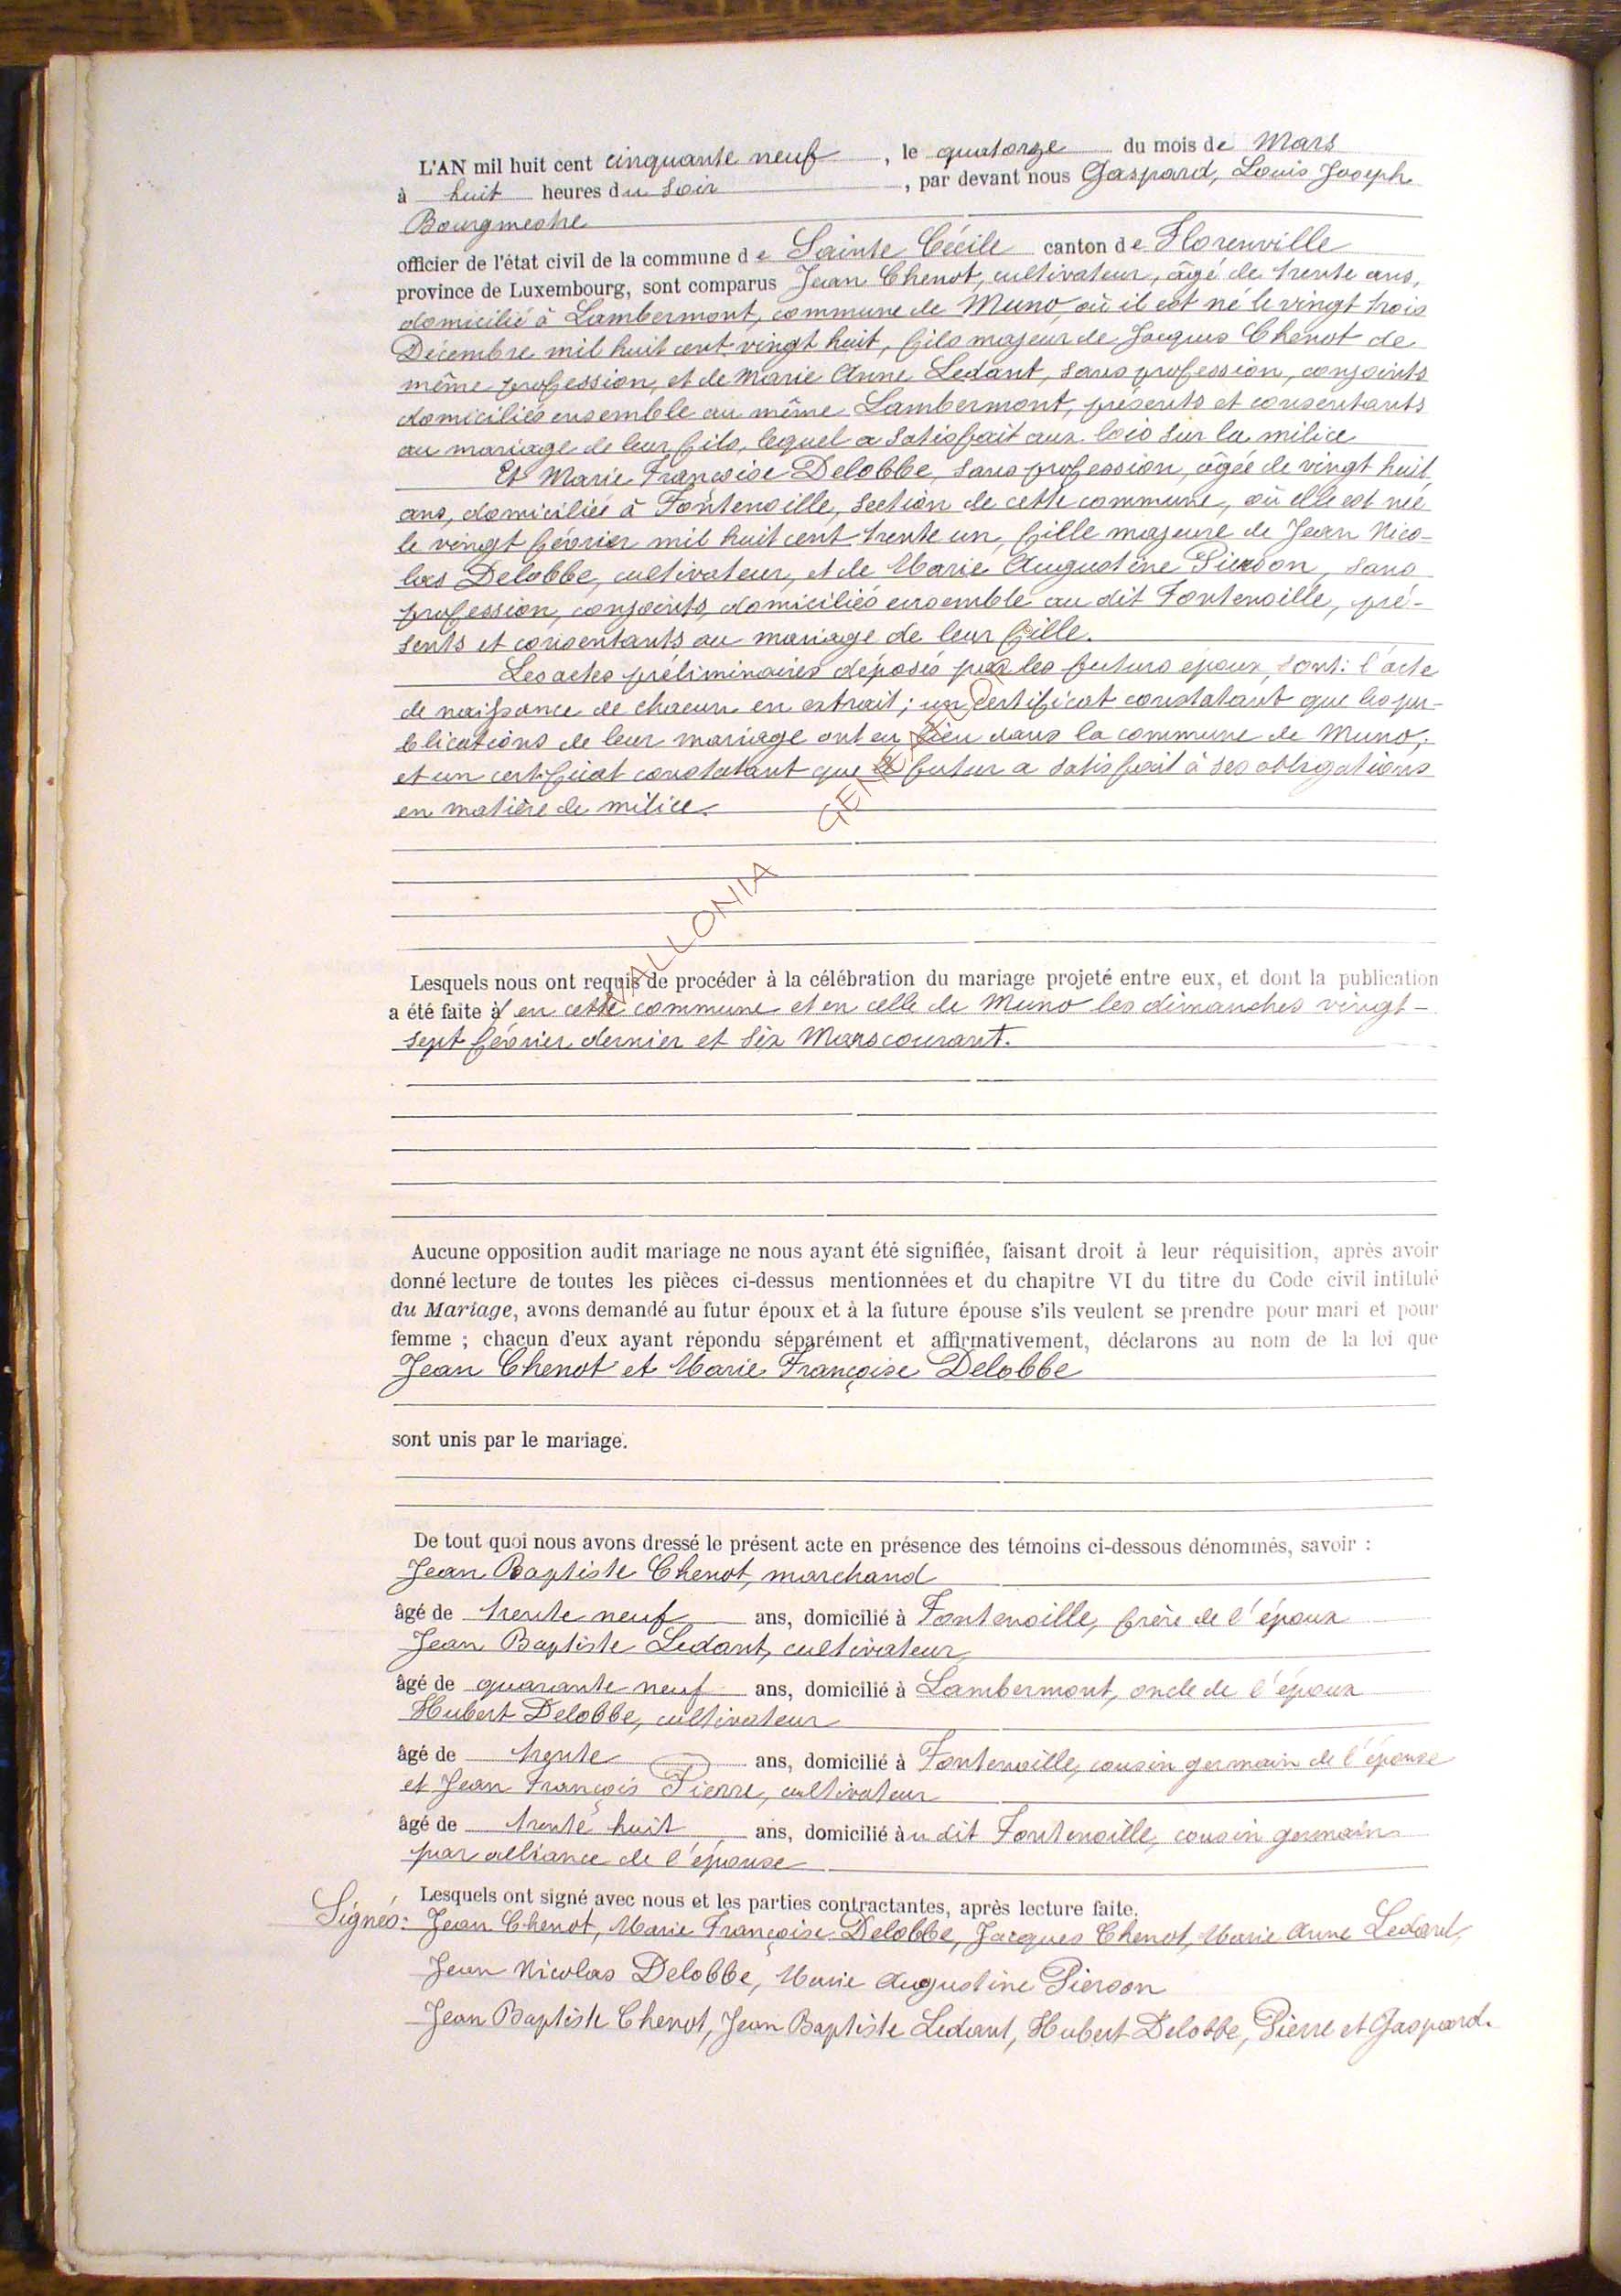 L'AN mil huit cent cinquante neuf, le quatorze du mois de Mars
à huit heures du soir, par devant nous Gaspard, Louis Joseph
Bourgmestre
officier de l'état civil de la commune de Sainte Cécile canton de Florenville
province de Luxembourg, sont comparus Jean Chenot, cultivateur, âgé de trente ans,
domicilié à Lambermont, commune de Muno, où il est né le vingt trois
Décembre mil huit cent vingt huit, fils majeur de Jacques Chenot de
même profession, et de Marie Anne Ledant, sans profession, conjoints
domiciliés ensemble au même Lambermont, présents et consentants
au mariage de leur fils, lequel a satisfait aux lois sur la milice
Et Marie Françoise Delobbe, sans profession, âgée de vingt huit
ans, domiciliée à Fontenoille, section de cette commune, où elle est née
le vingt février mil huit cent trente un, fille majeure de Jean Nico-
las Delobbe, cultivateur, et de Marie Augustine Pierson, sans
profession, conjoints, domiciliés ensemble au dit Fontenoille, pré-
sents et consentants au mariage de leur fille.
Les actes préliminaires déposés par les futurs époux, sont: l'acte
de naissance de chacun en extrait; un certificat constatant que les pu-
blications de leur mariage ont eu lieu dans la commune de Muno;
et un certificat constatant que le futur a satisfait à ses obligations
en matière de milice.
WALLONIA GENEALOGY
Lesquels nous ont requis de procéder à la célébration du mariage projeté entre eux, et dont la publication
a été faite à en cette commune et en celle de Muno les dimanches vingt-
sept février dernier et six Mars courant.
Aucune opposition audit mariage ne nous ayant été signifiée, faisant droit à leur réquisition, après avoir
donné lecture de toutes les pièces ci-dessus mentionnées et du chapitre VI du titre du Code civil intitulé
du Mariage, avons demandé au futur époux et à la future épouse s'ils veulent se prendre pour mari et pour
femme ; chacun d'eux ayant répondu séparément et affirmativement, déclarons au nom de la loi que
Jean Chenot et Marie Françoise Delobbe
sont unis par le mariage.
De tout quoi nous avons dressé le présent acte en présence des témoins ci-dessous dénommés, savoir :
Jean Baptiste Chenot, marchand
âgé de trente neuf ans, domicilié à Fontenoille, frère de l'époux
Jean Baptiste Ledant, cultivateur
âgé de quarante neuf ans, domicilié à Lambermont, oncle de l'époux
Hubert Delobbe, cultivateur
âgé de trente ans, domicilié à Fontenoille, cousin germain de l'épouse
et Jean François Pierre, cultivateur
âgé de trente huit ans, domicilié au dit Fontenoille, cousin germain
par alliance de l'épouse
Lesquels ont signé avec nous et les parties contractantes, après lecture faite.
Signés: Jean Chenot, Marie Françoise Delobbe, Jacques Chenot, Marie Anne Ledant,
Jean Nicolas Delobbe, Marie Augustine Pierson
Jean Baptiste Chenot, Jean Baptiste Ledant, Hubert Delobbe, Pierre et Gaspard.